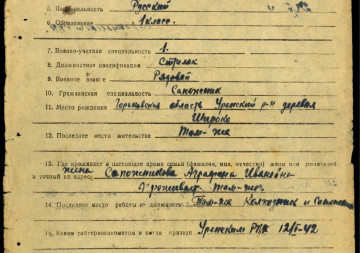 5. Национальность Русский
6. Образование 1 класс.
7. Военно-учетная специальность 1.
8. Должностная квалификация Стрелок
9. Военное звание Рядовой
10. Гражданская специальность Сапожник
11. Место рождения Горьковская область Уренский р-н деревня
Широко
12. Последнее место жительства Там-же
13. Где проживает в настоящее время семья (фамилия, имя, отчество) жены или родителей
и точный их адрес жена Сапожникова Аграфена Ивановна
Проживает там-же.
14. Последнее место работы и должность Там-же Колхозник и Сапожник
15. Каким райгорвоенкоматом и когда призван Уренским РВК 12/I-42